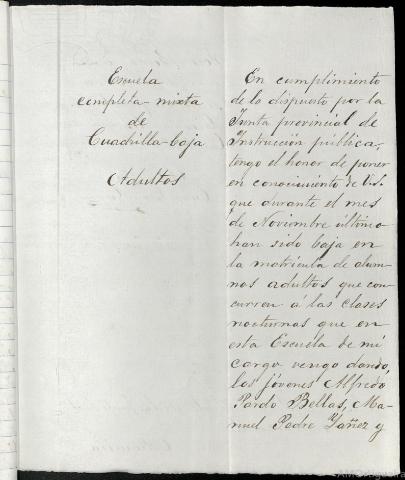 Escuela
completa-mixta
de
Cuadrilla-baja
Adultos
En cumplimiento
de lo dispuesto por la
Junta provincial de
Instrucción pública,
tengo el honor de poner
en conocimiento de V.S.
que durante el mes
de Noviembre último
han sido baja en
la matrícula de alum
nos adultos que con
curren á las clases
nocturnas que en
esta Escuela de mi
cargo vengo dando,
los jóvenes Alfredo
Pardo Bellas, Ma-
nuel Pedre Yáñez y